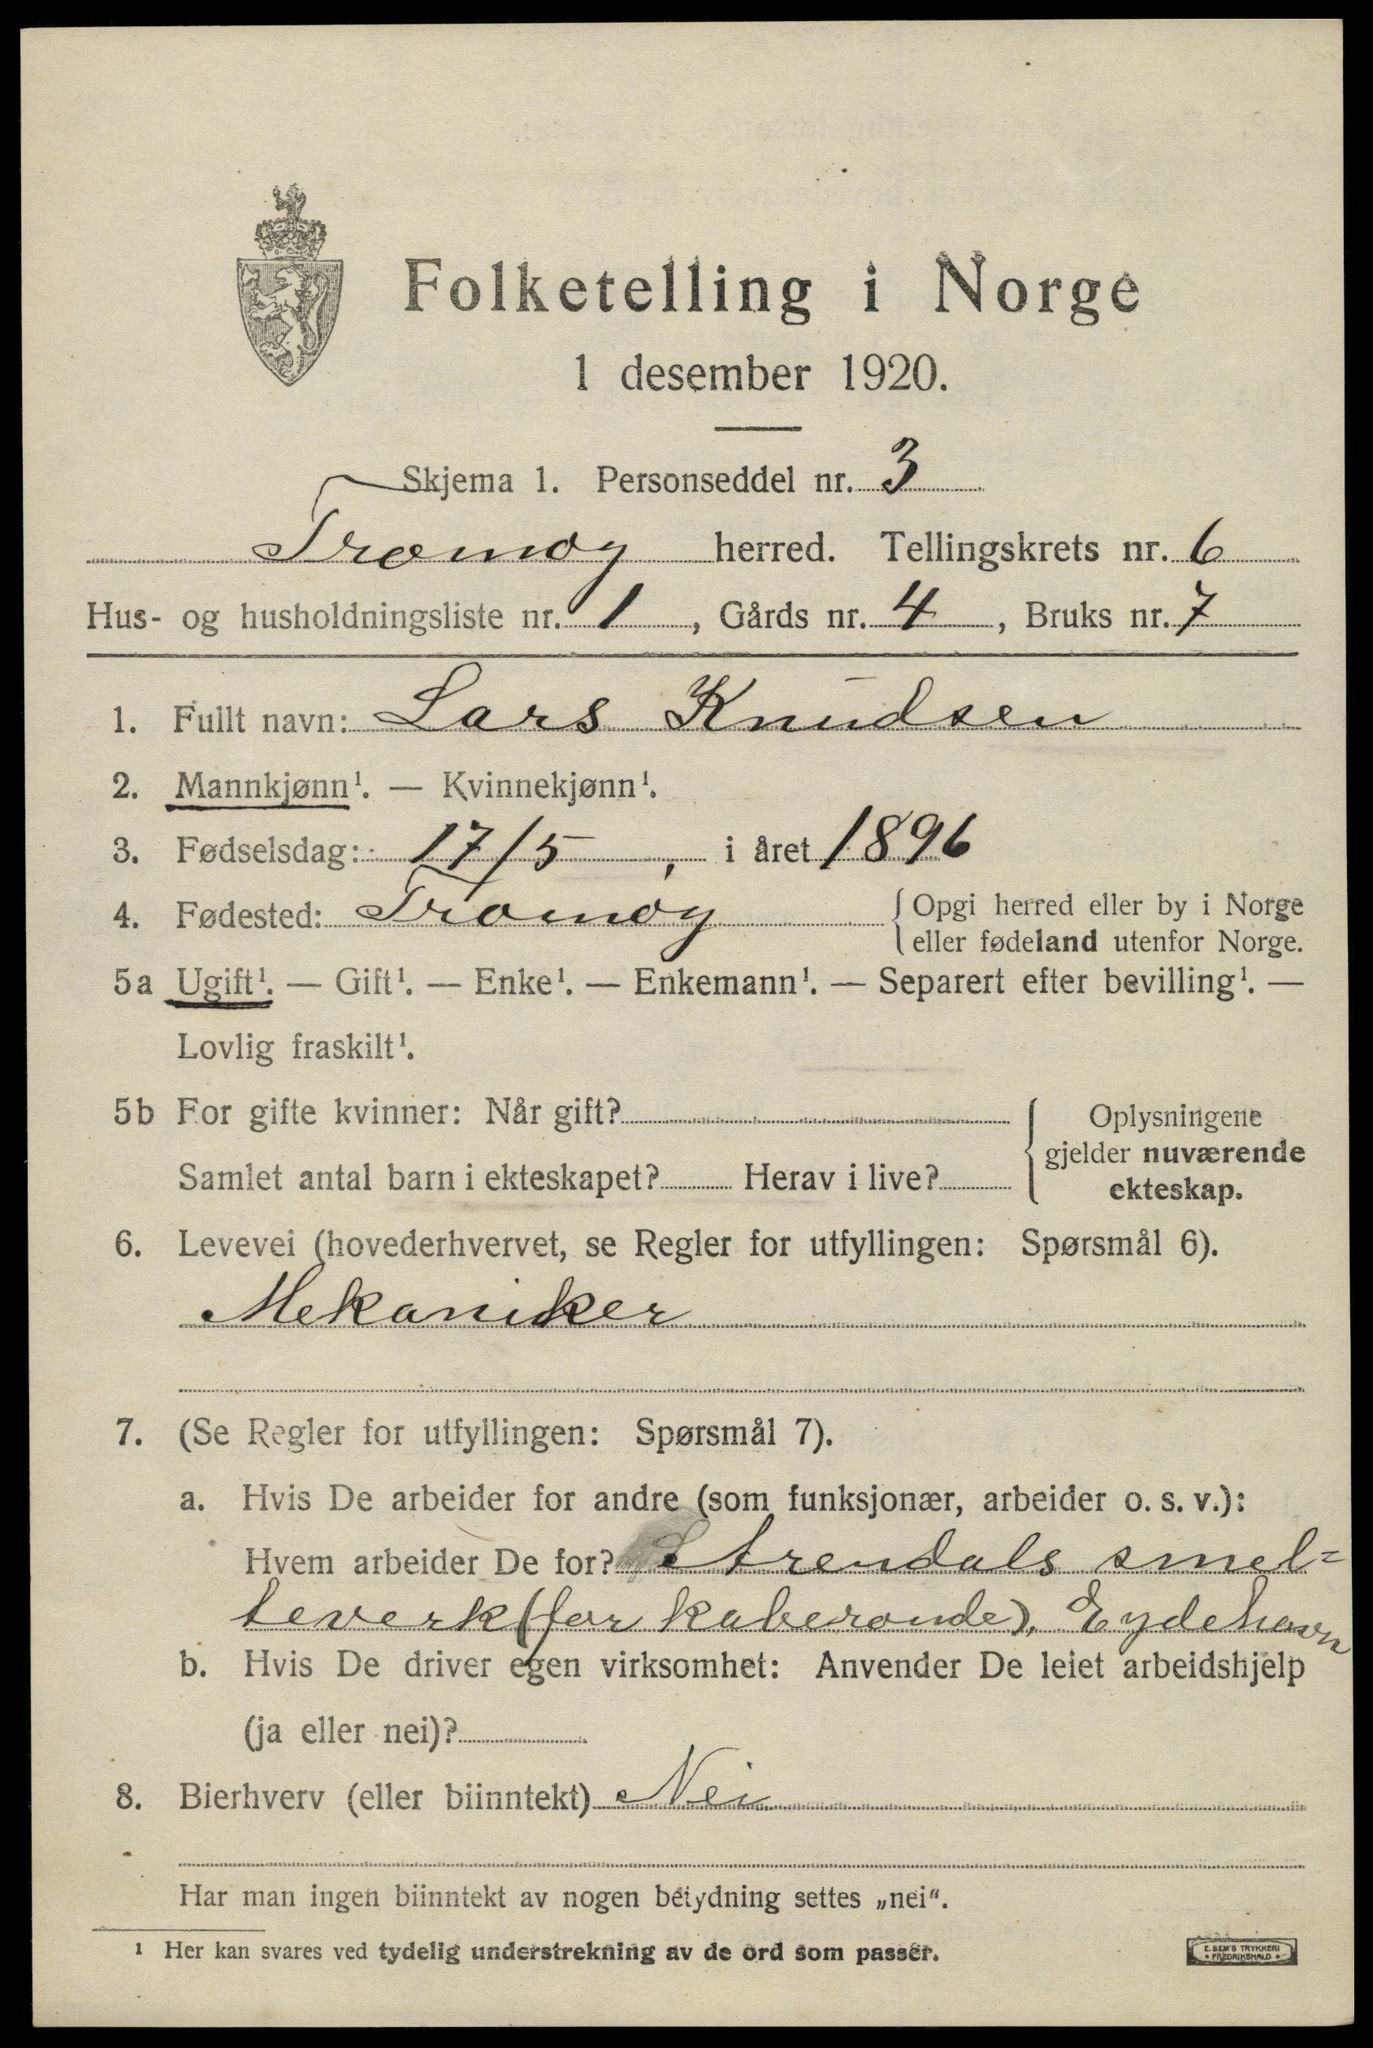 Folketelling i Norge
1 desember 1920.
Skjema 1. Personseddel nr. 3
Tromøy herred. Tellingskrets nr. 6
Hus- og husholdningsliste nr. 1, Gårds nr. 4, Bruks nr. 7
1. Fullt navn: Lars Knudsen
2. Mannkjønn¹. — Kvinnekjønn¹.
3. Fødselsdag: 17/5, i året 1896
4. Fødested: Tromøy {Opgi herred eller by i Norge
eller fødeland utenfor Norge.
5a Ugift¹. — Gift¹. — Enke¹. — Enkemann¹. — Separert efter bevilling¹. —
Lovlig fraskilt¹.
5b For gifte kvinner: Når gift?
Samlet antal barn i ekteskapet? Herav i live?
Oplysningene
gjelder nuværende
ekteskap.
6. Levevei (hovederhvervet, se Regler for utfyllingen: Spørsmål 6).
Mekaniker
7. (Se Regler for utfyllingen: Spørsmål 7).
a. Hvis De arbeider for andre (som funksjonær, arbeider o. s. v.):
Hvem arbeider De for? Arendals smel=
teverk (for kaberonde), Eydehavn
b. Hvis De driver egen virksomhet: Anvender De leiet arbeidshjelp
(ja eller nei)?
8. Bierhverv (eller biinntekt) Nei
Har man ingen biinntekt av nogen betydning settes „nei“.
¹ Her kan svares ved tydelig understrekning av de ord som passer.
E. SEM'S TRYKKERI
FREDRIKSHALD